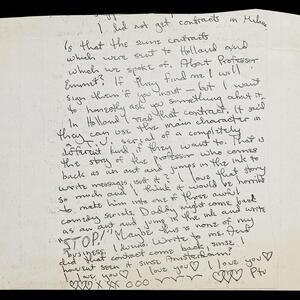 I did not get contracts in
Is that the same contracts
which were sent to Holland and
which we spoke of. About Professor
Emmet? If they find me I will
sign them if you want — but I want
to honestly ask you something about it.
In Holland I read that contract, it said
they can use the main character in
a T.V. serial of a completely
different kind if they want to. That is
the story of the professor who comes
back as an ant and jumps in the ink to
write messages isn't it? I love that story
so much and I think it would be horrible
to make him into one of those awful
comedy serials. Daddy might come back
as an ant and jump in the ink and write
"STOP!" Maybe this is none of my
business. I dunno. Write to me. And
did that contact come back, since I
haven't seen it since Amsterdam?
I love you ♡ I love you ♡ I love you ♡
♡♡♡ XXX OOO